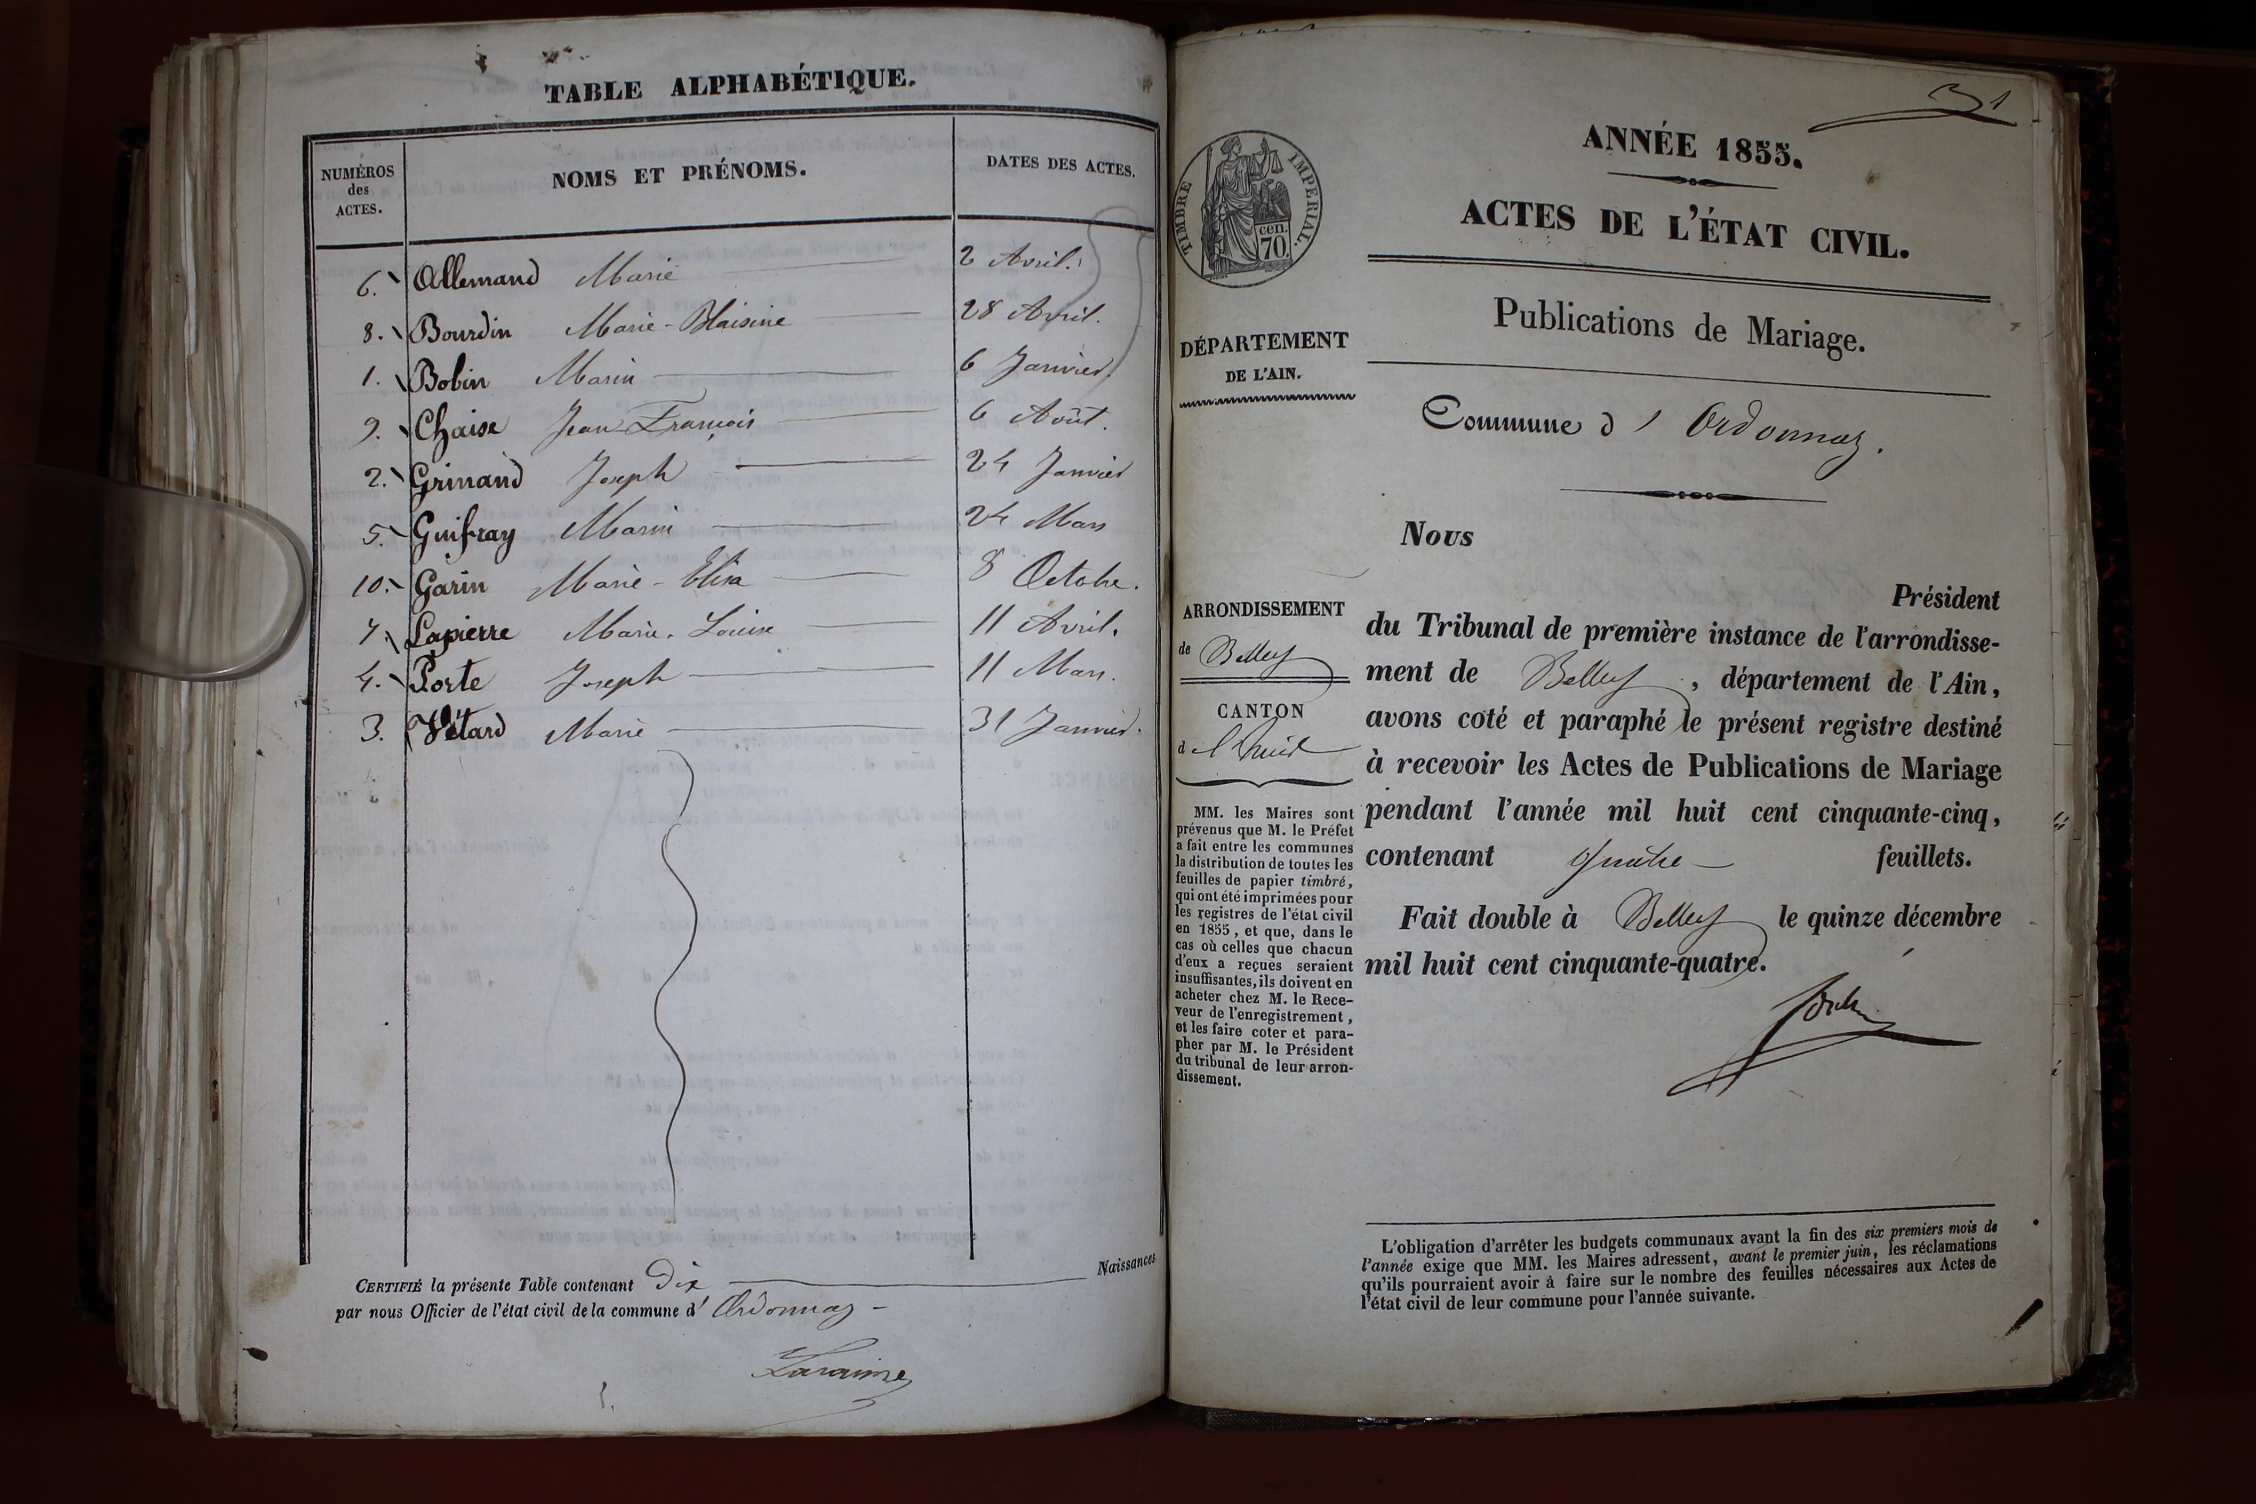 TABLE ALPHABÉTIQUE.
NUMÉROS des ACTES. NOMS ET PRÉNOMS. DATES DES ACTES.
6. Allemand Marie 2 Avril.
8. Bourdin Marie-Blaisine 28 Avril.
1. Bobin Marin 6 Janvier.
9. Chaise Jean François 6 Août.
2. Grinand Joseph 24 Janvier
5. Guifray Marin 24 Mars
10. Garin Marie-Elisa 8 Octobre.
7. Lapierre Marie-Louise 11 Avril.
4. Porte Joseph 11 Mars.
3. Vétard Marie 31 Janvier.
CERTIFIÉ la présente Table contenant Dix Naissances
par nous Officier de l'état civil de la commune d' Ordonnaz
ANNÉE 1855.
ACTES DE L'ÉTAT CIVIL.
Publications de Mariage.
Commune d' Ordonnaz.
TIMBRE IMPÉRIAL.
cen.
70.
DÉPARTEMENT
DE L'AIN.
ARRONDISSEMENT
de Belley
CANTON
d
MM. les Maires sont
prévenus que M. le Préfet
a fait entre les communes
la distribution de toutes les
feuilles de papier timbré,
qui ont été imprimées pour
les registres de l'état civil
en 1855, et que, dans le
cas où celles que chacun
d'eux a reçues seraient
insuffisantes, ils doivent en
acheter chez M. le Rece-
veur de l'enregistrement,
et les faire coter et para-
pher par M. le Président
du tribunal de leur arron-
dissement.
Nous
Président
du Tribunal de première instance de l'arrondisse-
ment de Belley, département de l'Ain,
avons coté et paraphé le présent registre destiné
à recevoir les Actes de Publications de Mariage
pendant l'année mil huit cent cinquante-cinq,
contenant quatre feuillets.
Fait double à Belley le quinze décembre
mil huit cent cinquante-quatre.
L'obligation d'arrêter les budgets communaux avant la fin des six premiers mois de
l'année exige que MM. les Maires adressent, avant le premier juin, les réclamations
qu'ils pourraient avoir à faire sur le nombre des feuilles nécessaires aux Actes de
l'état civil de leur commune pour l'année suivante.